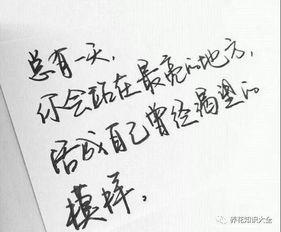 总有一天，
你会站在最亮的地方，
活成自己曾经渴望的
模样。
养花知识大全